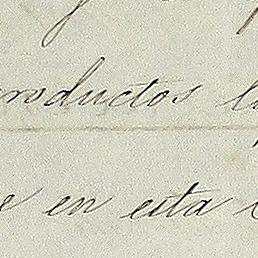 y
roductos l
e en esta